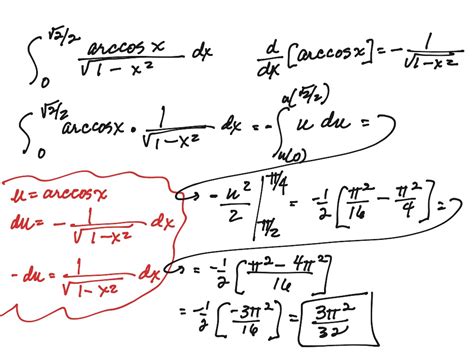 ∫_0^{√2/2} arccos x / √(1 - x²) dx    d/dx [arccos x] = - 1/√(1-x²)
∫_0^{√2/2} arccos x · 1/√(1-x²) dx = - ∫_{u(0)}^{u(√2/2)} u du =
u = arccos x
du = - 1/√(1-x²) dx
- du = 1/√(1-x²) dx
→ - u²/2 |_{π/2}^{π/4} = -1/2 [π²/16 - π²/4] =
→ = -1/2 [(π² - 4π²)/16]
= -1/2 [-3π²/16] = 3π²/32